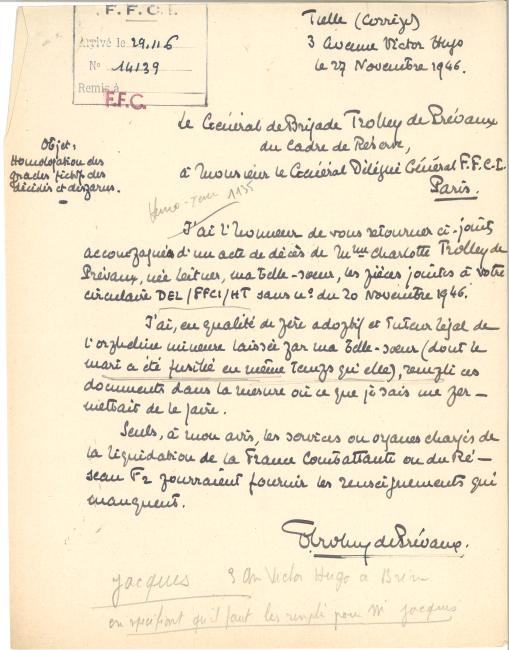 F. F. C. I.
Arrivé le 29.11.6
N° 14139
Remis à
F.F.C.
Tulle (Corrèze)
3 Avenue Victor Hugo
le 27 Novembre 1946.
Le Général de Brigade Trolley de Prévaux
du Cadre de Réserve,
à Monsieur le Général Délégué Général F.F.C.I.
Paris.
Objet:
Homologation des
grades fictifs des
décédés et disparus.
1135
J'ai l'honneur de vous retourner ci-joints
accompagnés d'un acte de décès de Mme Charlotte Trolley de
Prévaux, née Leitner, ma belle-sœur, les pièces jointes à votre
circulaire DEL/FFCI/HT sans n° du 20 Novembre 1946.
J'ai, en qualité de père adoptif et tuteur légal de
l'orpheline mineure laissée par ma belle-sœur (dont le
mari a été fusillé en même temps qu'elle), rempli ces
documents dans la mesure où ce que je sais me per-
mettrait de le faire.
Seuls, à mon avis, les services ou organes chargés de
la liquidation de la France Combattante ou du Ré-
seau F2 pourraient fournir les renseignements qui
manquent.
Trolley de Prévaux.
Jacques 3 Av Victor Hugo à
en spécifiant qu'il faut les rempli pour Mr Jacques